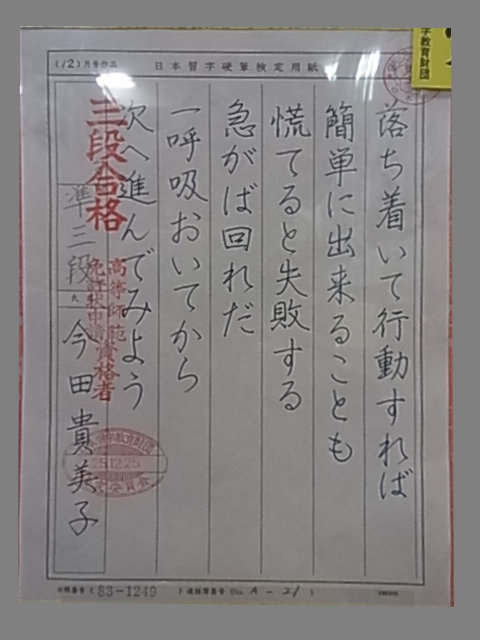 (12)月号作品
日本習字硬筆検定用紙
字教育財団
落ち着いて行動すれば
簡単に出来ることも
慌てると失敗する
急がば回れだ
一呼吸おいてから
次へ進んでみよう
三段合格
高等師範
免許状申請資格者
準三段
氏
今田貴美子
25.12.25
(83-1249)
(No. A-21)